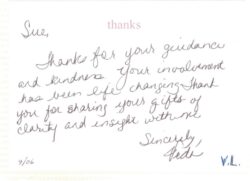 thanks
Sue,
Thanks for your guidance
and kindness your involvement
has been life changing Thank
you for sharing your gifts of
clarity and insight with me
Sincerely,
9/06
V.L.